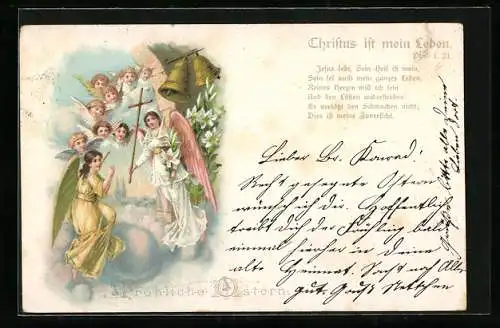 Christus ist mein Leben.
Phil. 1. 21.
Jesus lebt, Sein Heil ist mein,
Sein sei auch mein ganzes Leben,
Reines Herzens will ich sein
Und den Lüsten widerstreben.
Er verläßt den Schwachen nicht;
Dies ist meine Zuversicht.
Lieber Br. Konrad!
Recht gesegnete Ostern
wünsch ich dir. Hoffentlich
treibt dich der Frühling bald
einmal hierher in deine
alte Heimat. Sonst noch Alles
gut. Gruß
Fröhliche Ostern.
Grüße bitte alle